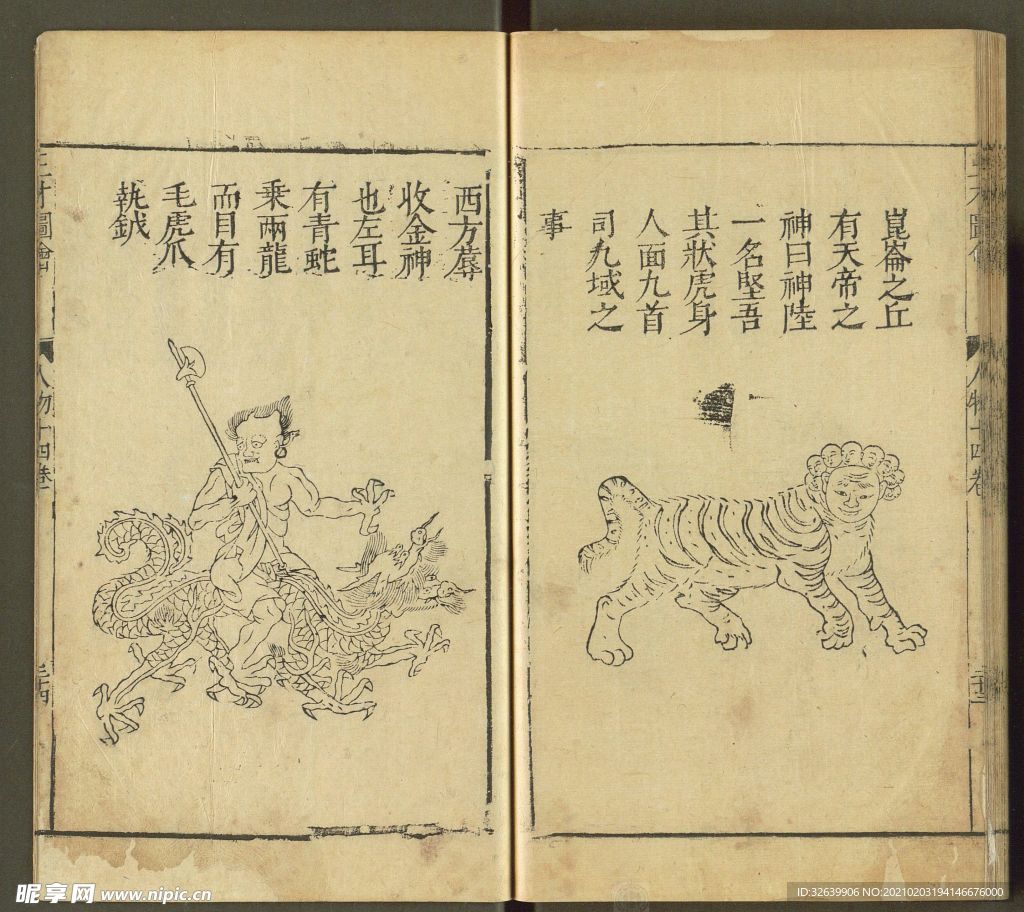 崑崙之丘
有天帝之
神曰神陸
一名堅吾
其狀虎身
人面九首
司九域之
事
西方蓐
收金神
也左耳
有青蛇
乘兩龍
而目有
毛虎爪
執鉞
三才圖會
人物十四卷
三十四
人物十四卷
昵享网 www.nipic.cn
ID:32639906 NO:20210203194146676000